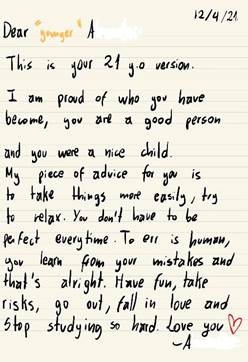 12/4/21
Dear "younger" A
This is your 21 y.o version.
I am proud of who you have
become, you are a good person
and you were a nice child.
My piece of advice for you is
to take things more easily, try
to relax. You don't have to be
perfect everytime. To err is human,
you learn from your mistakes and
that's alright. Have fun, take
risks, go out, fall in love and
stop studying so hard. Love you
-A